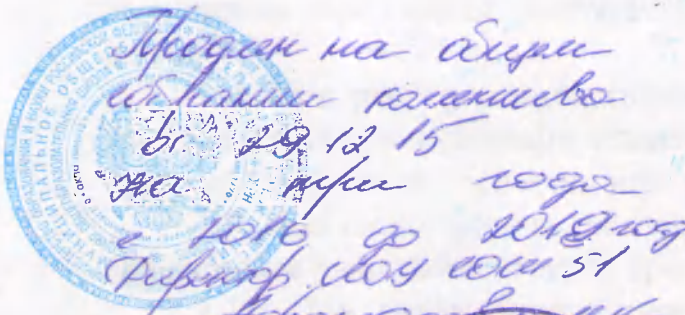 Продлен на общем
собрании коллектива
от 29.12.15
на три года
с 2016 до 2019 год
Директор МОУ СОШ 51